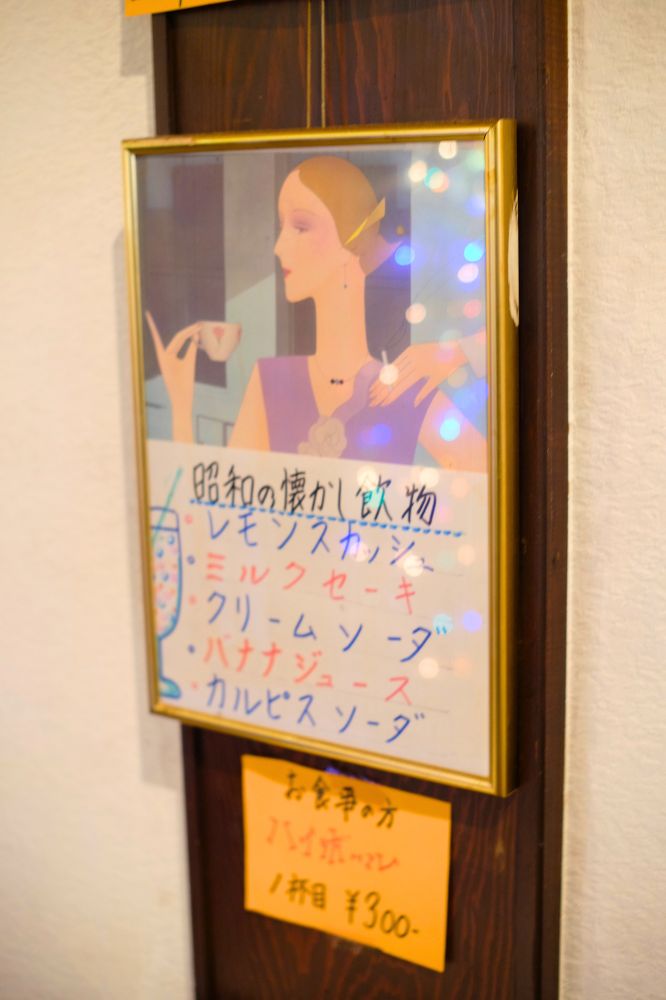 昭和の懐かし飲物
レモンスカッシュ
ミルクセーキ
クリームソーダ
バナナジュース
カルピスソーダ
お食事の方
ハイボール
1杯目 ¥300-